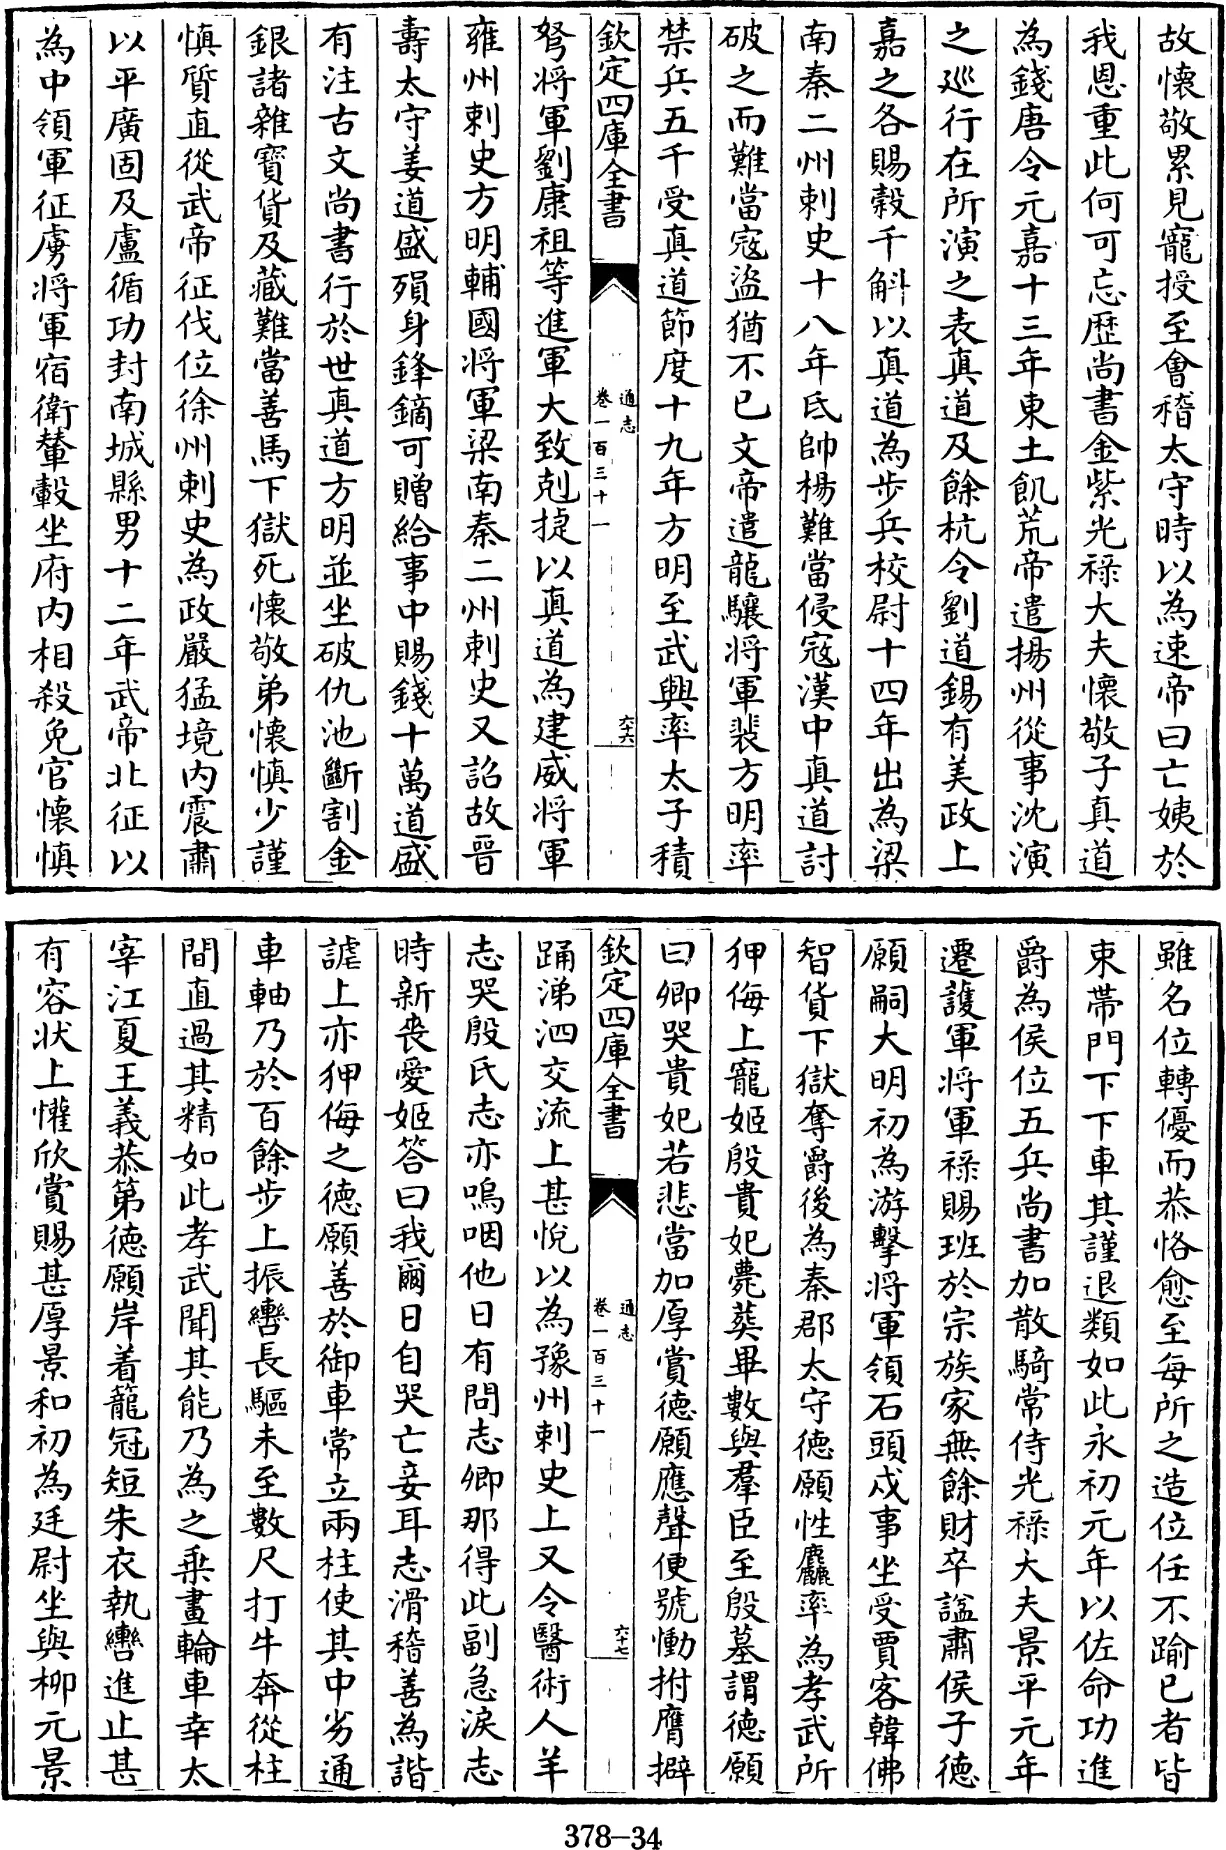 故懐敬累見寵授至會稽太守時以為速帝曰亡姨於
我恩重此何可忘歴尚書金紫光禄大夫懐敬子真道
為錢唐令元嘉十三年東土飢荒帝遣揚州從事沈演
之巡行在所演之表真道及餘杭令劉道錫有美政上
嘉之各賜穀千斛以真道為步兵校尉十四年出為梁
南秦二州刺史十八年氐帥楊難當侵寇漢中真道討
破之而難當寇盜猶不已文帝遣龍驤將軍裴方明率
禁兵五千受真道節度十九年方明至武興率太子積
欽定四庫全書
通志
卷一百三十一
六十六
弩將軍劉康祖等進軍大致剋捷以真道為建威將軍
雍州刺史方明輔國將軍梁南秦二州刺史又詔故晉
壽太守姜道盛殞身鋒鏑可贈給事中賜錢十萬道盛
有注古文尚書行於世真道方明並坐破仇池斷割金
銀諸雜寶貨及藏難當善馬下獄死懐敬弟懐慎少謹
慎質直從武帝征伐位徐州刺史為政嚴猛境内震肅
以平廣固及盧循功封南城縣男十二年武帝北征以
為中領軍征虜將軍宿衛輦轂坐府内相殺免官懐慎
雖名位轉優而恭恪愈至每所之造位任不踰已者皆
束帶門下下車其謹退類如此永初元年以佐命功進
爵為侯位五兵尚書加散騎常侍光禄大夫景平元年
遷護軍將軍禄賜班於宗族家無餘財卒諡肅侯子徳
願嗣大明初為游擊將軍領石頭戍事坐受賈客韓佛
智貨下獄奪爵後為秦郡太守徳願性麤率為孝武所
狎侮上寵姬殷貴妃薨葬畢數與羣臣至殷墓謂徳願
曰卿哭貴妃若悲當加厚賞徳願應聲便號慟拊膺擗
欽定四庫全書
通志
卷一百三十一
六十七
踊涕泗交流上甚悅以為豫州刺史上又令醫術人羊
志哭殷氏志亦嗚咽他日有問志卿那得此副急淚志
時新喪愛姬答曰我爾日自哭亡妾耳志滑稽善為諧
謔上亦狎侮之徳願善於御車常立兩柱使其中劣通
車軸乃於百餘步上振轡長驅未至數尺打牛奔從柱
間直過其精如此孝武聞其能乃為之乗畫輪車幸太
宰江夏王義恭第徳願岸着籠冠短朱衣執轡進止甚
有容状上懽欣賞賜甚厚景和初為廷尉坐與柳元景
378-34